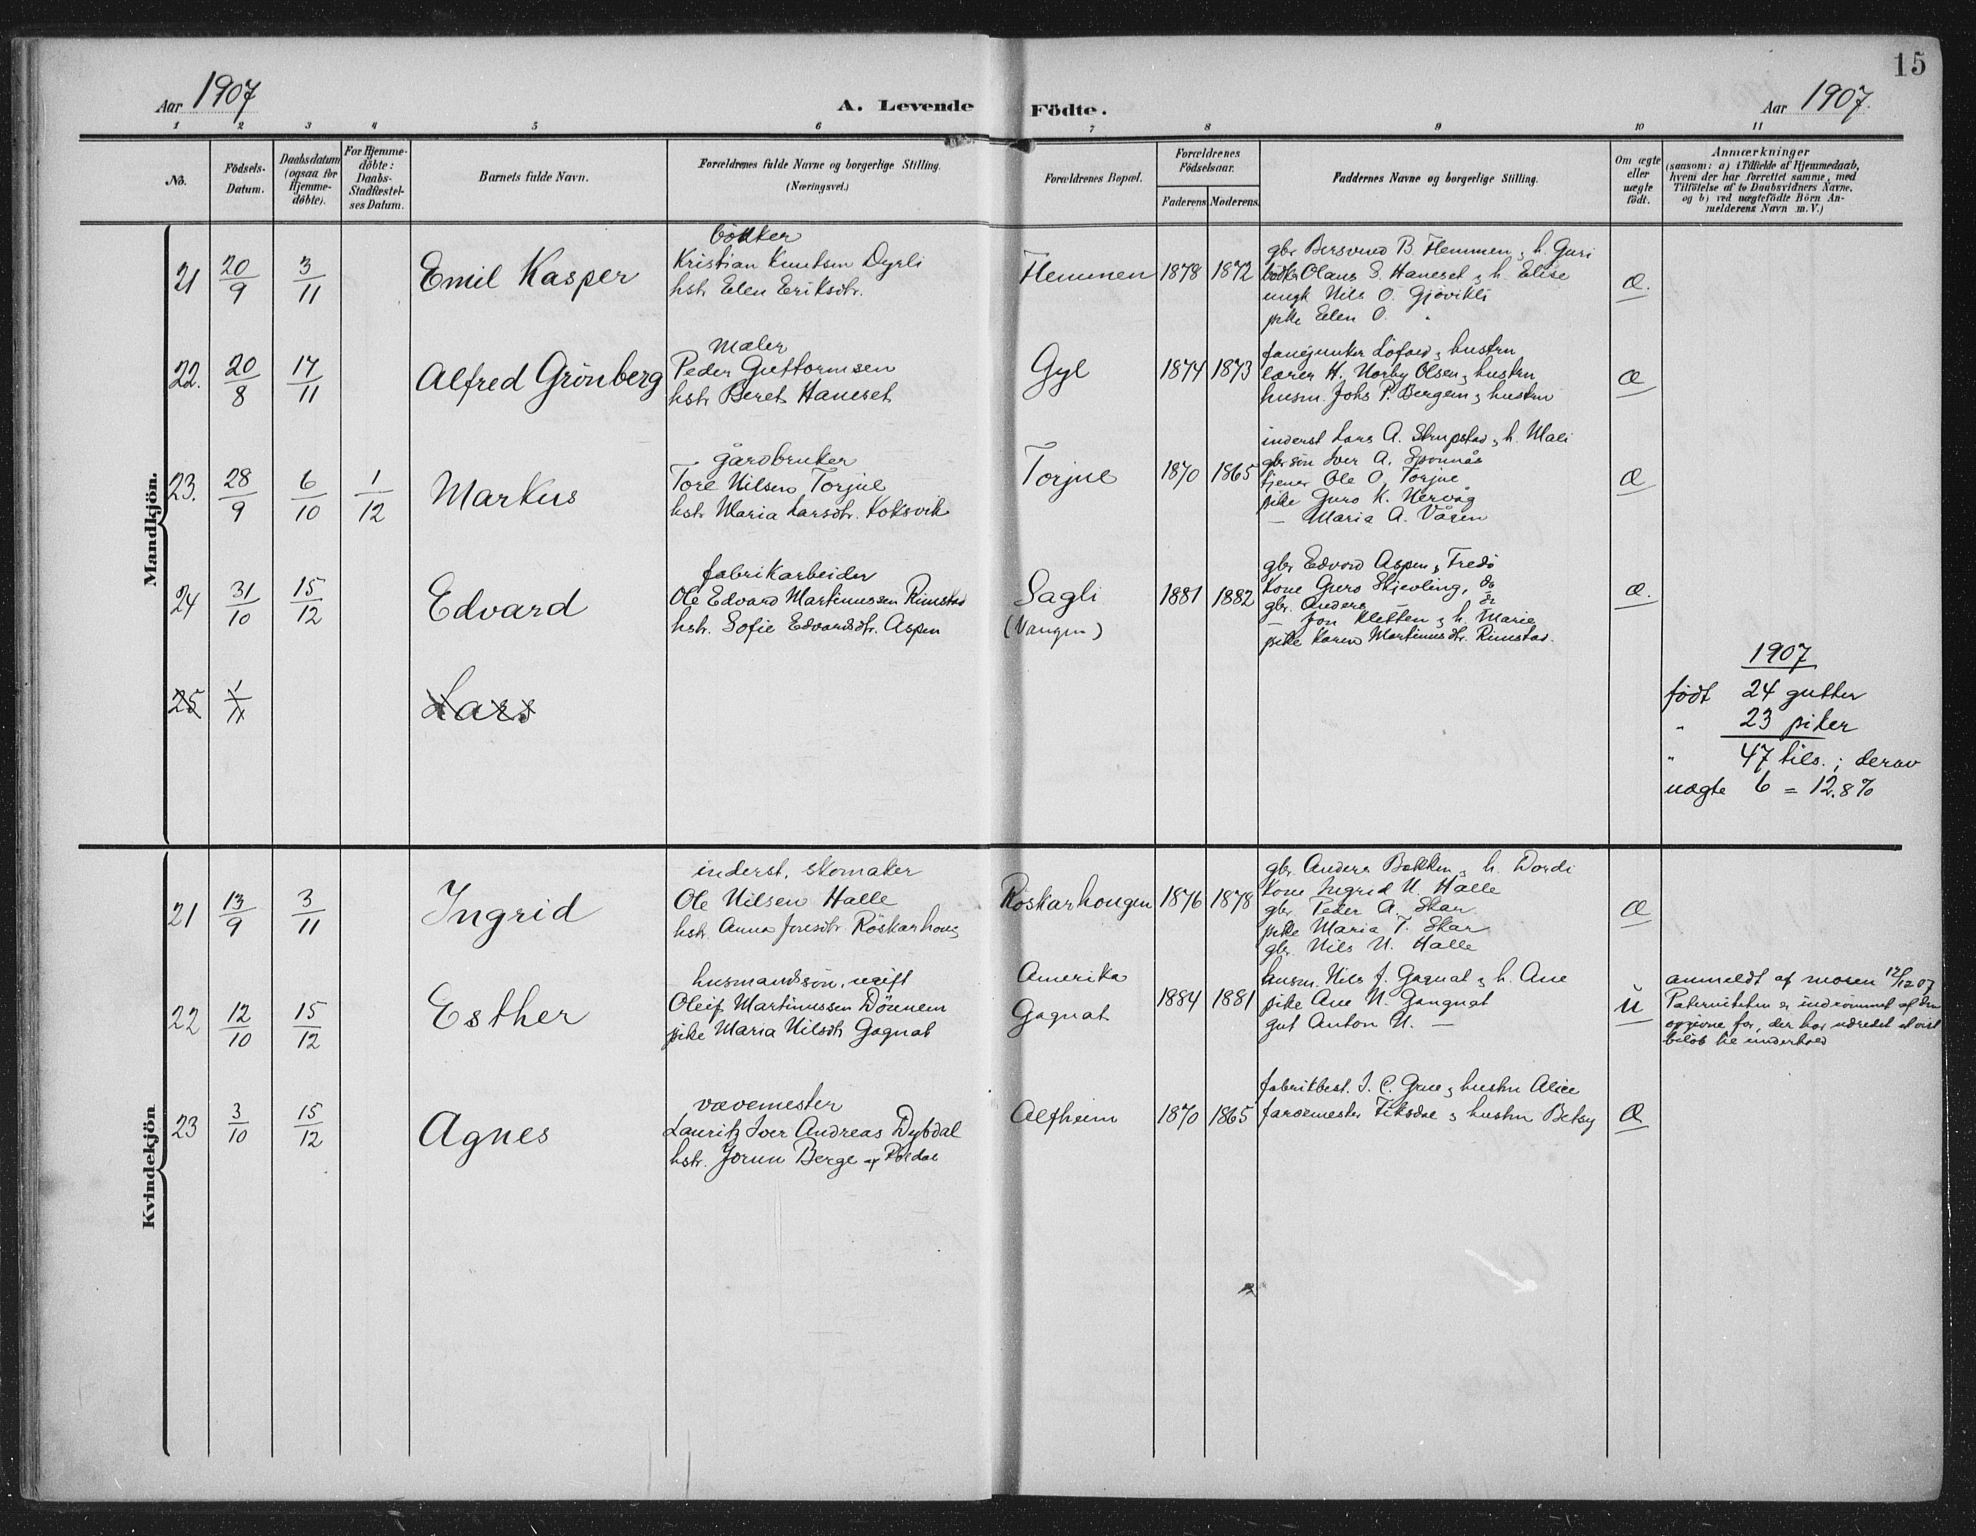 15
Aar 1907 A. Levende Födte. Aar 1907.
1 2 3 4 5 6 7 8 9 10 11
No. Födsels-Datum. Daabsdatum (ogsaa for Hjemme-döbte). For Hjemme-döbte: Daabs-Stadfæstel-ses Datum. Barnets fulde Navn. Forældrenes fulde Navne og borgerlige Stilling. (Næringsvei.) Forældrenes Bopæl. Forældrenes Födselsaar. Faderens Moderens Faddernes Navne og borgerlige Stilling. Om ægte eller uægte födt. Anmærkninger (saasom: a) i Tilfælde af Hjemmedaab, hvem der har forrettet samme, med Tilföielse af to Daabsvidners Navne, og b) ved uægtefödte Börn An-melderens Navn m. V.)
Mandkjön.
21 20/9 3/11 Emil Kasper
bökker
Kristian Knutsen Dyrli
hstr Elen Eriksdtr.
Flemmen 1878 1872
gbr Bersvend B. Flemmen, h. Guri
bödker Olaus S. Haneset, h. Elise
ungk Nils O. Gjövikli
pike Elen O. "
Æ.
22. 20/8 17/11 Alfred Grönberg
maler
Peder Guttormsen
hstr Beret Haneset
Gyl 1874 1873
fanejunker Lofald, hustru
lærer H. Norby Olsen, hustru
husm. Johs P. Bergem, hustru
Æ
23. 28/9 6/10 1/12 Markus
gårdbruker
Tore Nilsen Torjul
hstr Maria Larsdtr. Koksvik
Torjul 1870 1865
inderst Lars A. Skrupstad, h. Mali
gbr sön Iver A. Sponnås
tjener Ole O. Torjul
pike Guro K. Nervåg
— Maria A. Vågen
Æ
24 31/10 15/12 Edvard
fabrikarbeider
Ole Edvard Martinussen Rimstad
hstr. Sofie Edvardsdtr. Aspen
Sagli
(Vangen)
1881 1882
gbr Edvard Aspen, Fredö
kone Guro Skjevling, do
gbr. Anders do
— Jon Kletten, h. Marie
pike Karen Martinusdtr. Rimstad.
Æ.
25 1/11 Lars
1907
födt 24 gutter
" 23 piker
" 47 tils.; derav
uægte 6 = 12.8%
Kvindekjön
21 13/9 3/11 Ingrid
inderst, skomaker
Ole Nilsen Halle
hstr. Anna Jonsdtr. Röskarhoug
Röskarhougen 1876 1878
gbr Anders Bakken, h. Dordi
kone Ingrid N. Halle
gbr Peder A. Skar
pike Maria T. Skar
gbr Nils N. Halle
Æ
22 12/10 15/12 Esther
husmandssön, ugift
Oleif Martinussen Dönnem
pike Maria Nilsdtr Gagnat
Amerika
Gagnat
1884 1881
husm. Nils J. Gagnat, h. Ane
pike Ane N. Gangnat
gut Anton N. —
U
anmeldt af moren 12/12 07
Paterniteten er indrömmet af den
opgivne far, der har udredet et vist
belöb til underhold
23 3/10 15/12 Agnes
vævemester
Lauritz Iver Andreas Dybdal
hstr. Jorun Berge af Röldal
Alfheim 1870 1865
fabrikbest. I. C. Grue, hustru Alice
farvemester Fiksdal, hustru Betsy
Æ